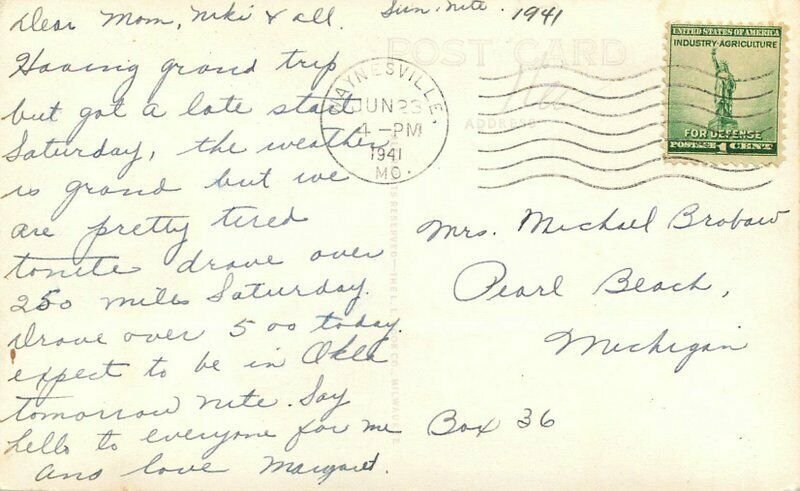 Dear Mom, Niki & all. Sun. nite. 1941
Having grand trip
but got a late start
Saturday, the weather
is grand but we
are pretty tired
tonite drove over
250 miles Saturday.
Drove over 500 today.
expect to be in Okla
tomorrow nite. Say
hello to everyone for me
and love Margaret.
POST CARD
ADDRESS
WAYNESVILLE.
JUN 23
4 - PM
1941
MO.
UNITED STATES OF AMERICA
INDUSTRY-AGRICULTURE
FOR DEFENSE
POSTAGE 1 CENT
Mrs. Michael Brobaw
Pearl Beach,
Michigan
Box 36